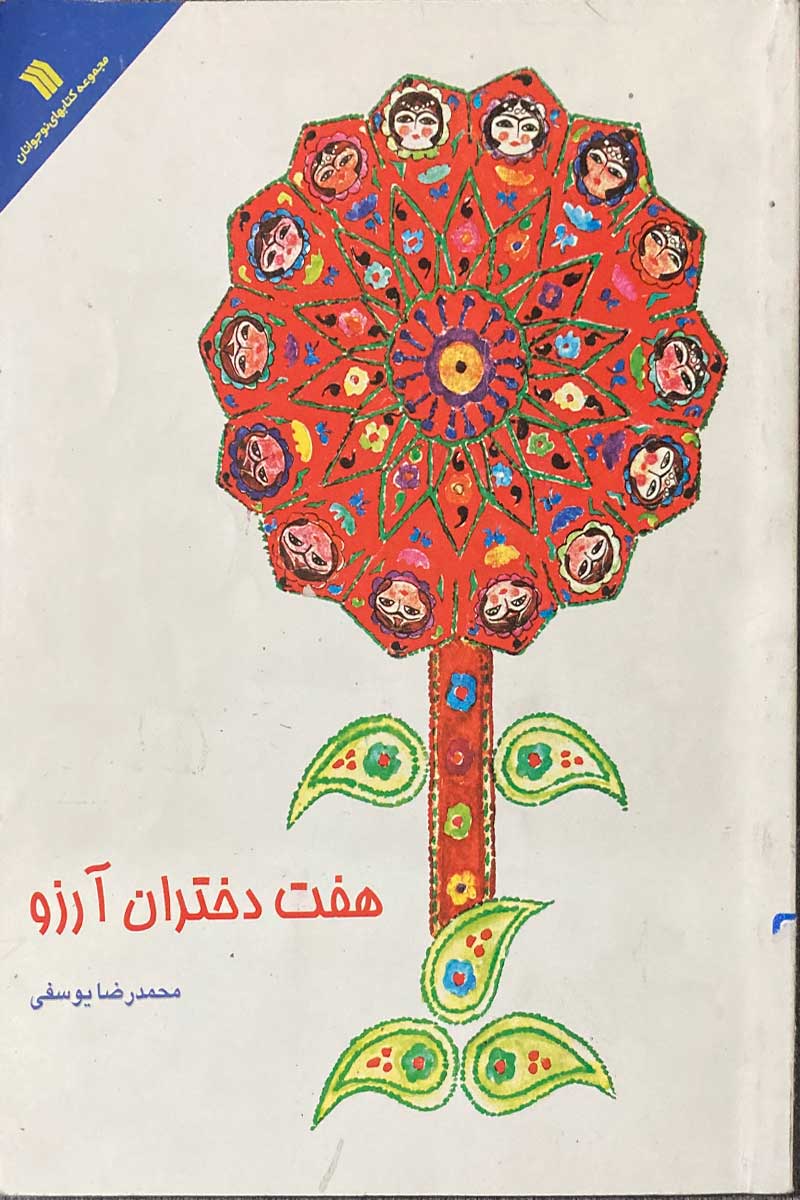 مجموعه کتابهای نوجوانان
هفت دختران آرزو
محمدرضا یوسفی